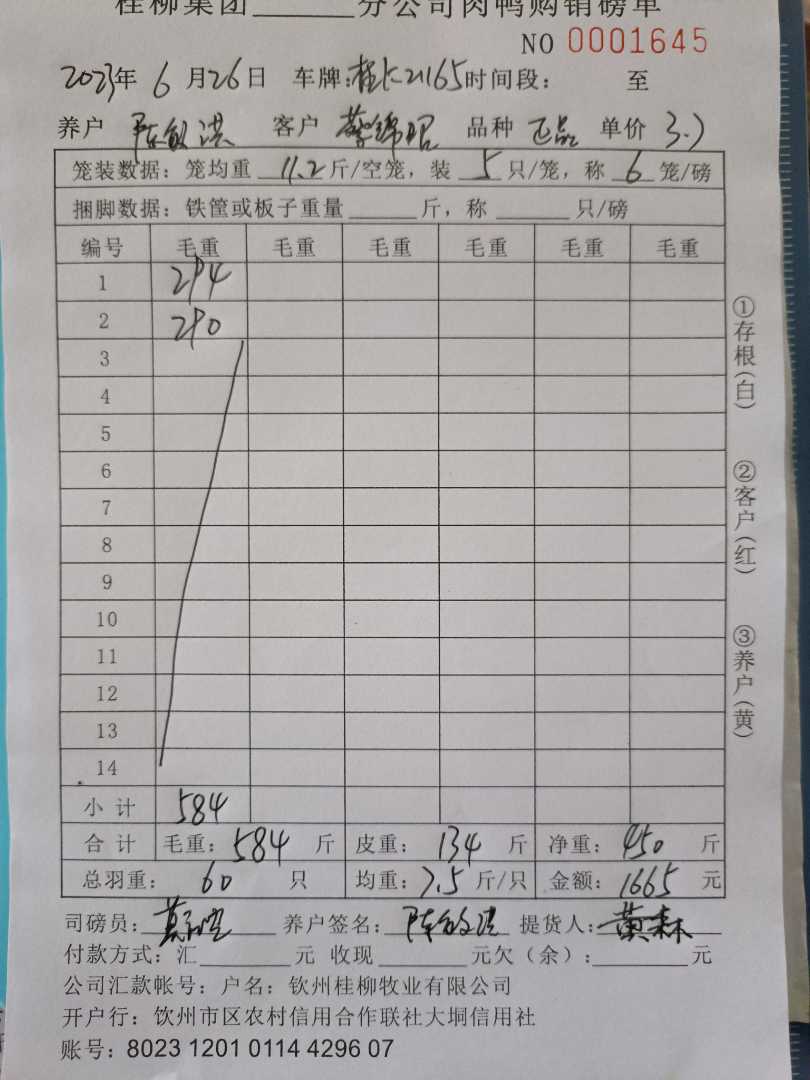 桂柳集团______分公司肉鸭购销磅单
NO 0001645
2023年 6 月 26 日 车牌:桂K21165 时间段: 至
养户 陈敏洪 客户 蔡锦昭 品种 正品 单价 3.7
笼装数据:笼均重 11.2 斤/空笼,装 5 只/笼,称 6 笼/磅
捆脚数据:铁筐或板子重量______斤,称______只/磅
编号 毛重 毛重 毛重 毛重 毛重 毛重
1 294
2 290
3
4
5
6
7
8
9
10
11
12
13
14
小计 584
合计 毛重:584 斤 皮重: 134 斤 净重: 450 斤
总羽重: 60 只 均重:7.5 斤/只 金额: 1665 元
司磅员: 养户签名: 陈敏洪 提货人: 黄森
付款方式:汇______元 收现______元欠(余):______元
公司汇款帐号:户名:钦州桂柳牧业有限公司
开户行:钦州市区农村信用合作联社大垌信用社
账号:8023 1201 0114 4296 07
①存根(白)
②客户(红)
③养户(黄)